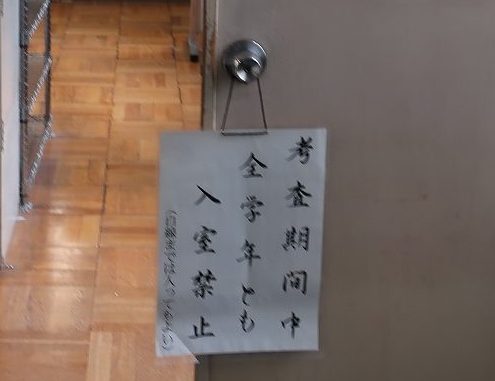 考査期間中
全学年とも
入室禁止